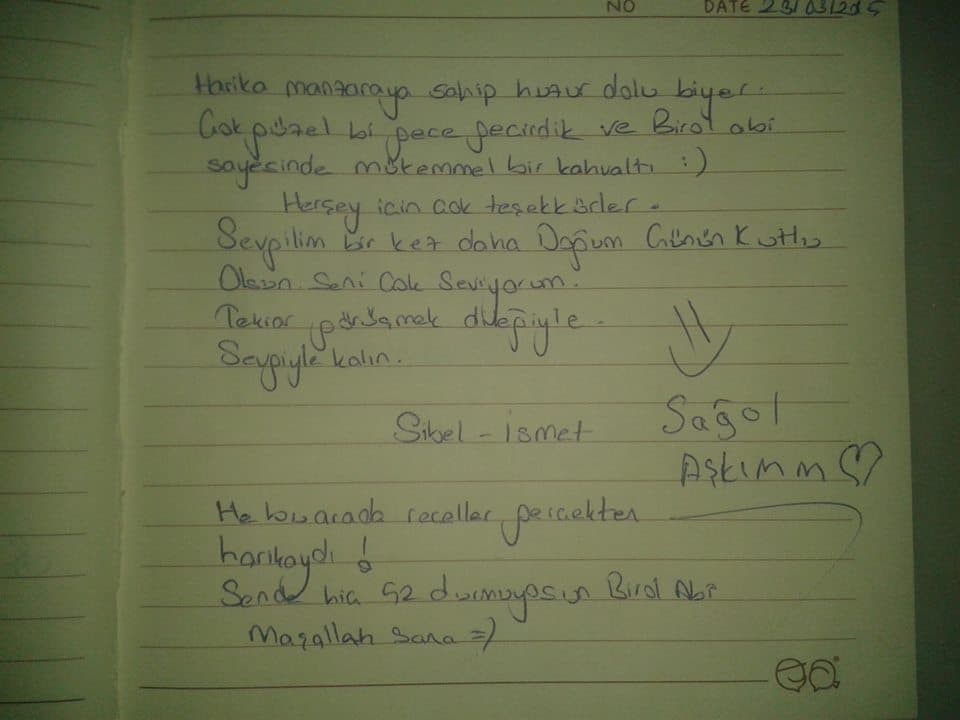 NO DATE 23/03/2015
Harika manzaraya sahip huzur dolu biyer.
Çok güzel bi gece geçirdik ve Birol abi
sayesinde mükemmel bir kahvaltı :)
Herşey için çok teşekkürler.
Sevgilim bir kez daha Doğum Günün Kutlu
Olsun. Seni Çok Seviyorum.
Tekrar görüşmek dileğiyle.
Sevgiyle kalın.
Sibel - ismet
Sağol
Aşkımm ♡
He bu arada reçeller gerçekten
harikaydı!
Sende hiç 52 durmuyosun Birol Abi
Maşallah Sana =)